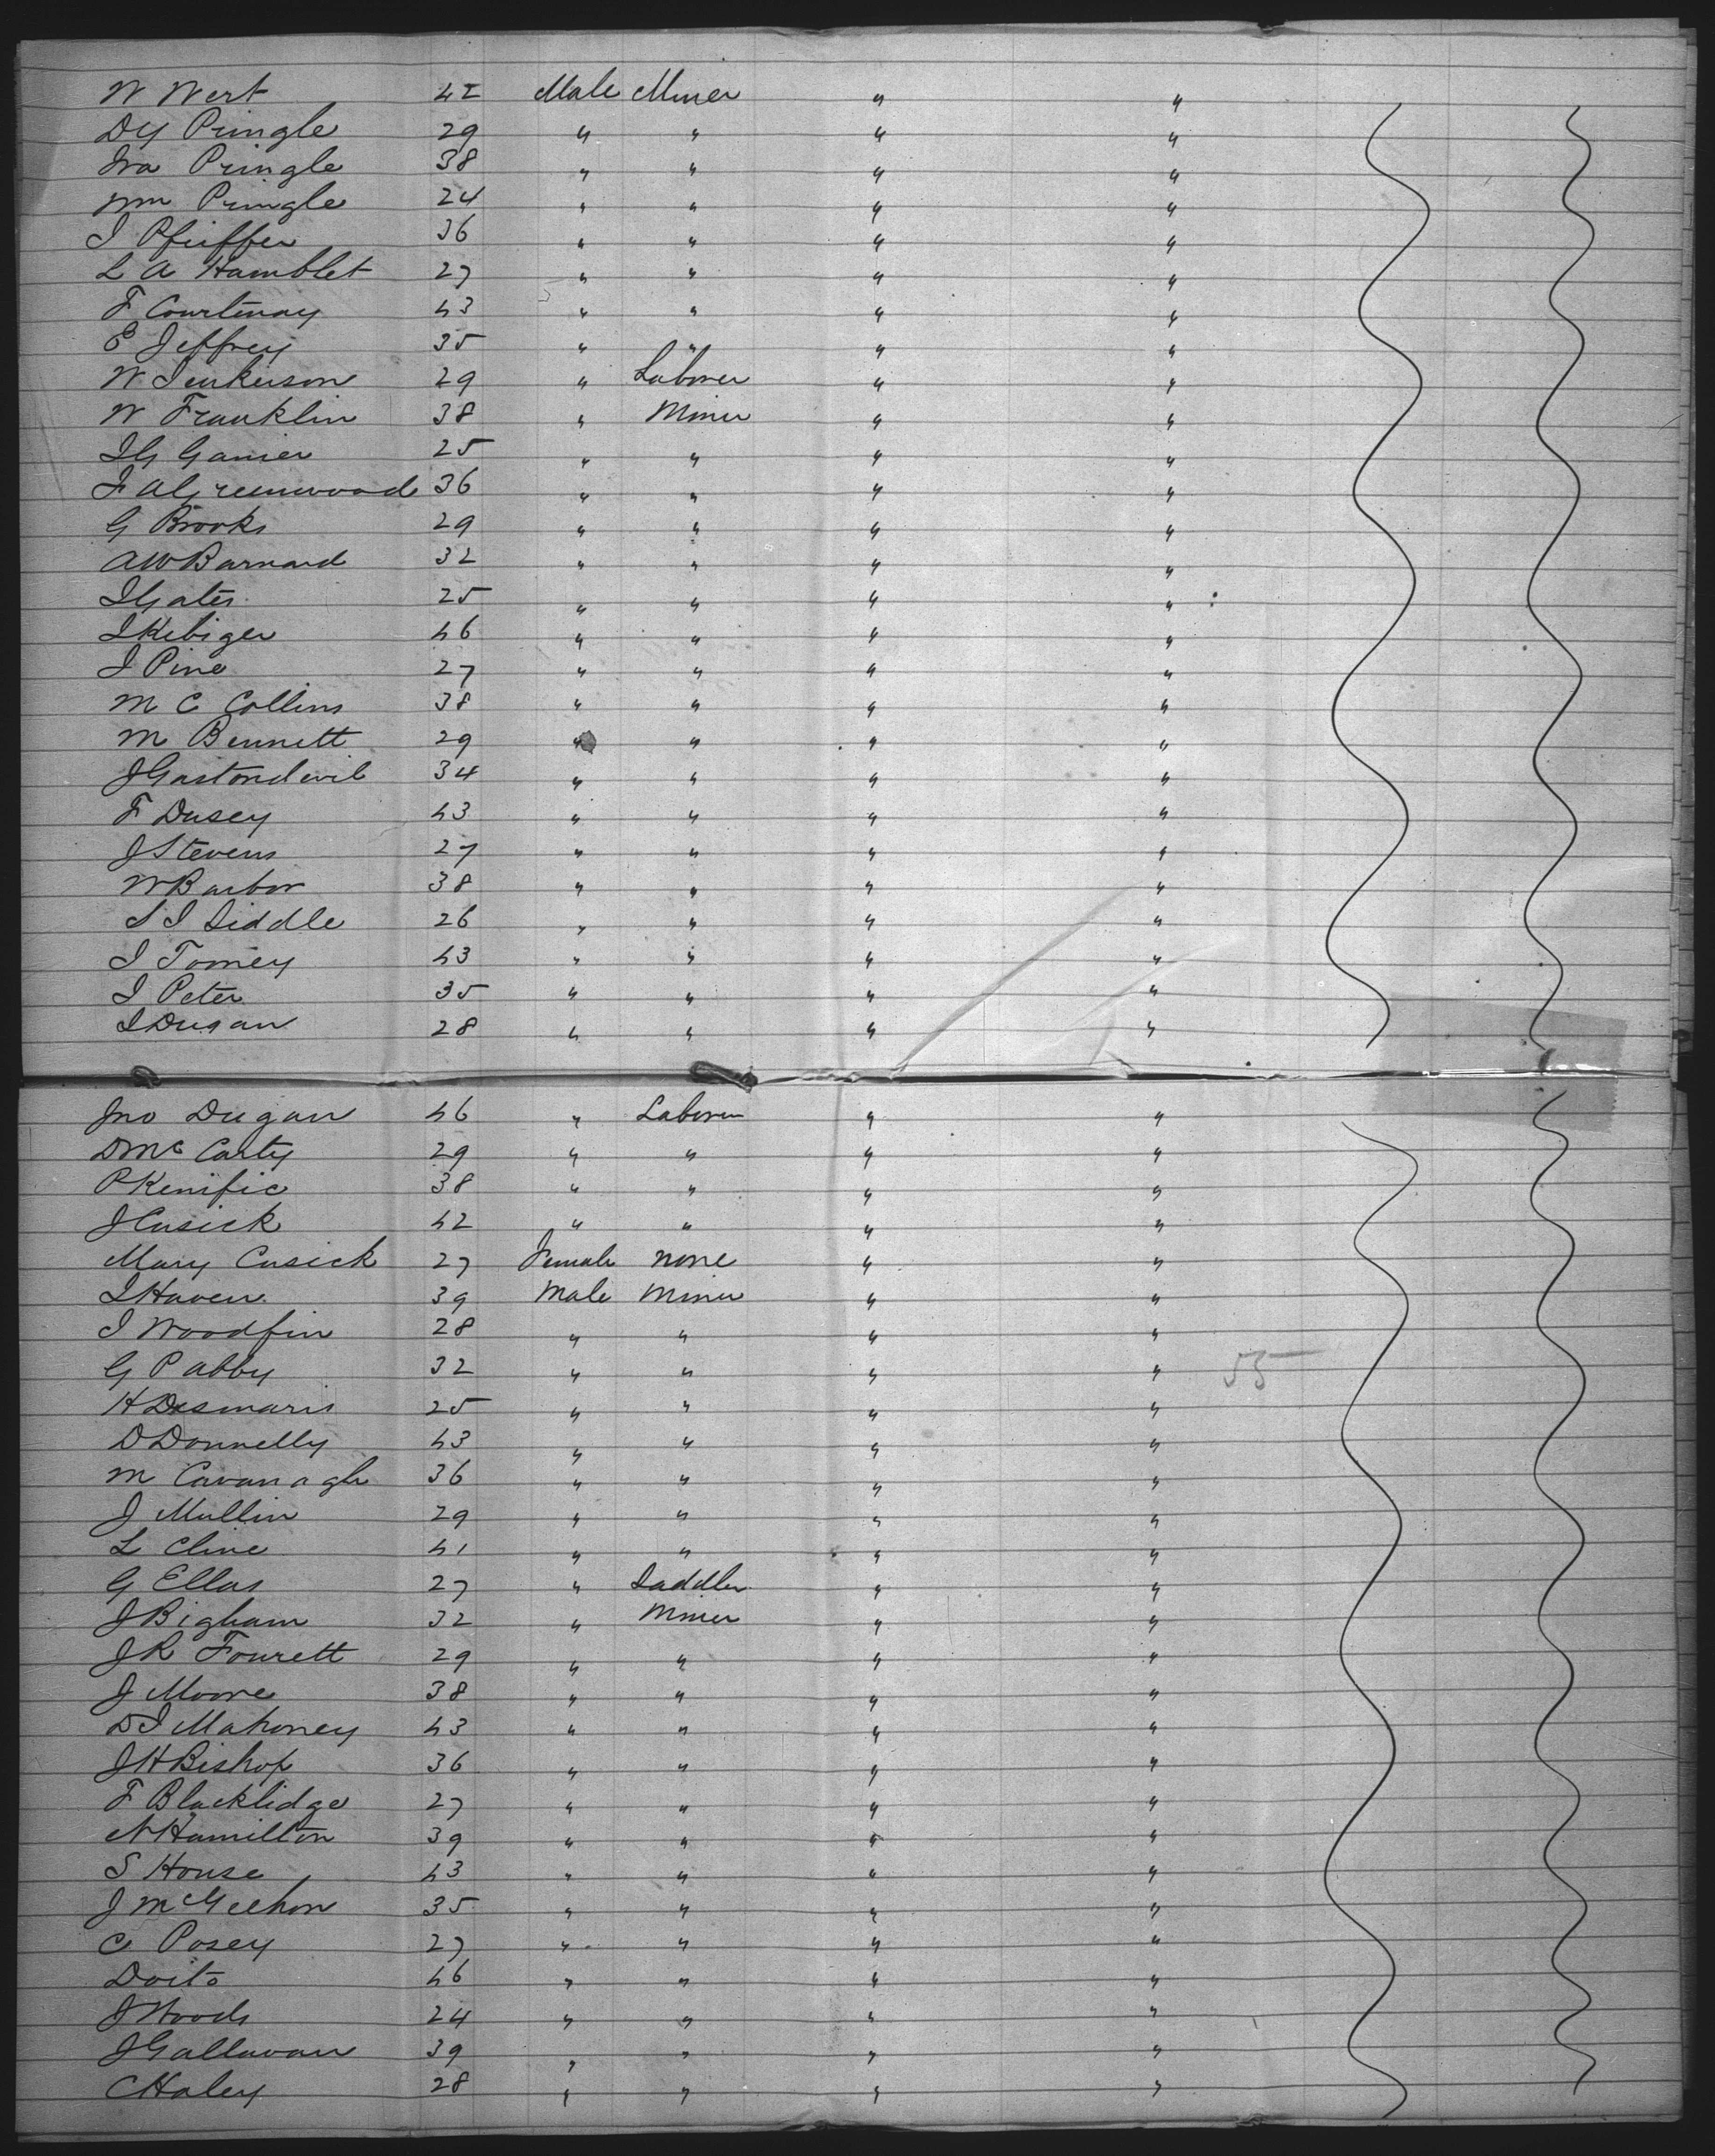 W Wert 42 Male Miner " "
DY Pringle 29 " " " "
Ira Pringle 38 " " " "
Wm Pringle 24 " " " "
J Pfeiffer 36 " " " "
L A Hamblet 27 " " " "
F Courtenay 43 " " " "
E Jeffrey 35 " " " "
W Jenkerson 29 " Laborer " "
W Franklin 38 " Miner " "
J G Ganier 25 " " " "
F A Greenwood 36 " " " "
G Brooks 29 " " " "
A W Barnard 32 " " " "
J Gates 25 " " " "
J Kebiger 46 " " " "
J Pine 27 " " " "
M C Collins 38 " " " "
M Bennett 29 " " " "
J Gastondevil 34 " " " "
F Dusey 43 " " " "
J Stevens 27 " " " "
W Barbor 38 " " " "
S J Siddle 26 " " " "
J Tomey 43 " " " "
J Peter 35 " " " "
J Dugan 28 " " " "
Jno Dugan 46 " Laborer " "
D McCarty 29 " " " "
P Kenific 38 " " " "
J Cusick 42 " " " "
Mary Cusick 27 Female none " "
J Haven 39 Male Miner " "
J Woodfin 28 " " " "
G P Abby 32 " " " " 55
H Desmaris 25 " " " "
D Donnelly 43 " " " "
M Cavanagh 36 " " " "
J Mullin 29 " " " "
L Cline 41 " " " "
G Ellas 27 " Saddler " "
J Bigham 32 " Miner " "
J R Fourett 29 " " " "
J Moore 38 " " " "
D J Mahoney 43 " " " "
J H Bishop 36 " " " "
F Blacklidge 27 " " " "
N Hamilton 39 " " " "
S House 43 " " " "
J McGeehon 35 " " " "
C Posey 27 " " " "
Doito 46 " " " "
J Woods 24 " " " "
J Gallavan 39 " " " "
C Haley 28 " " " "